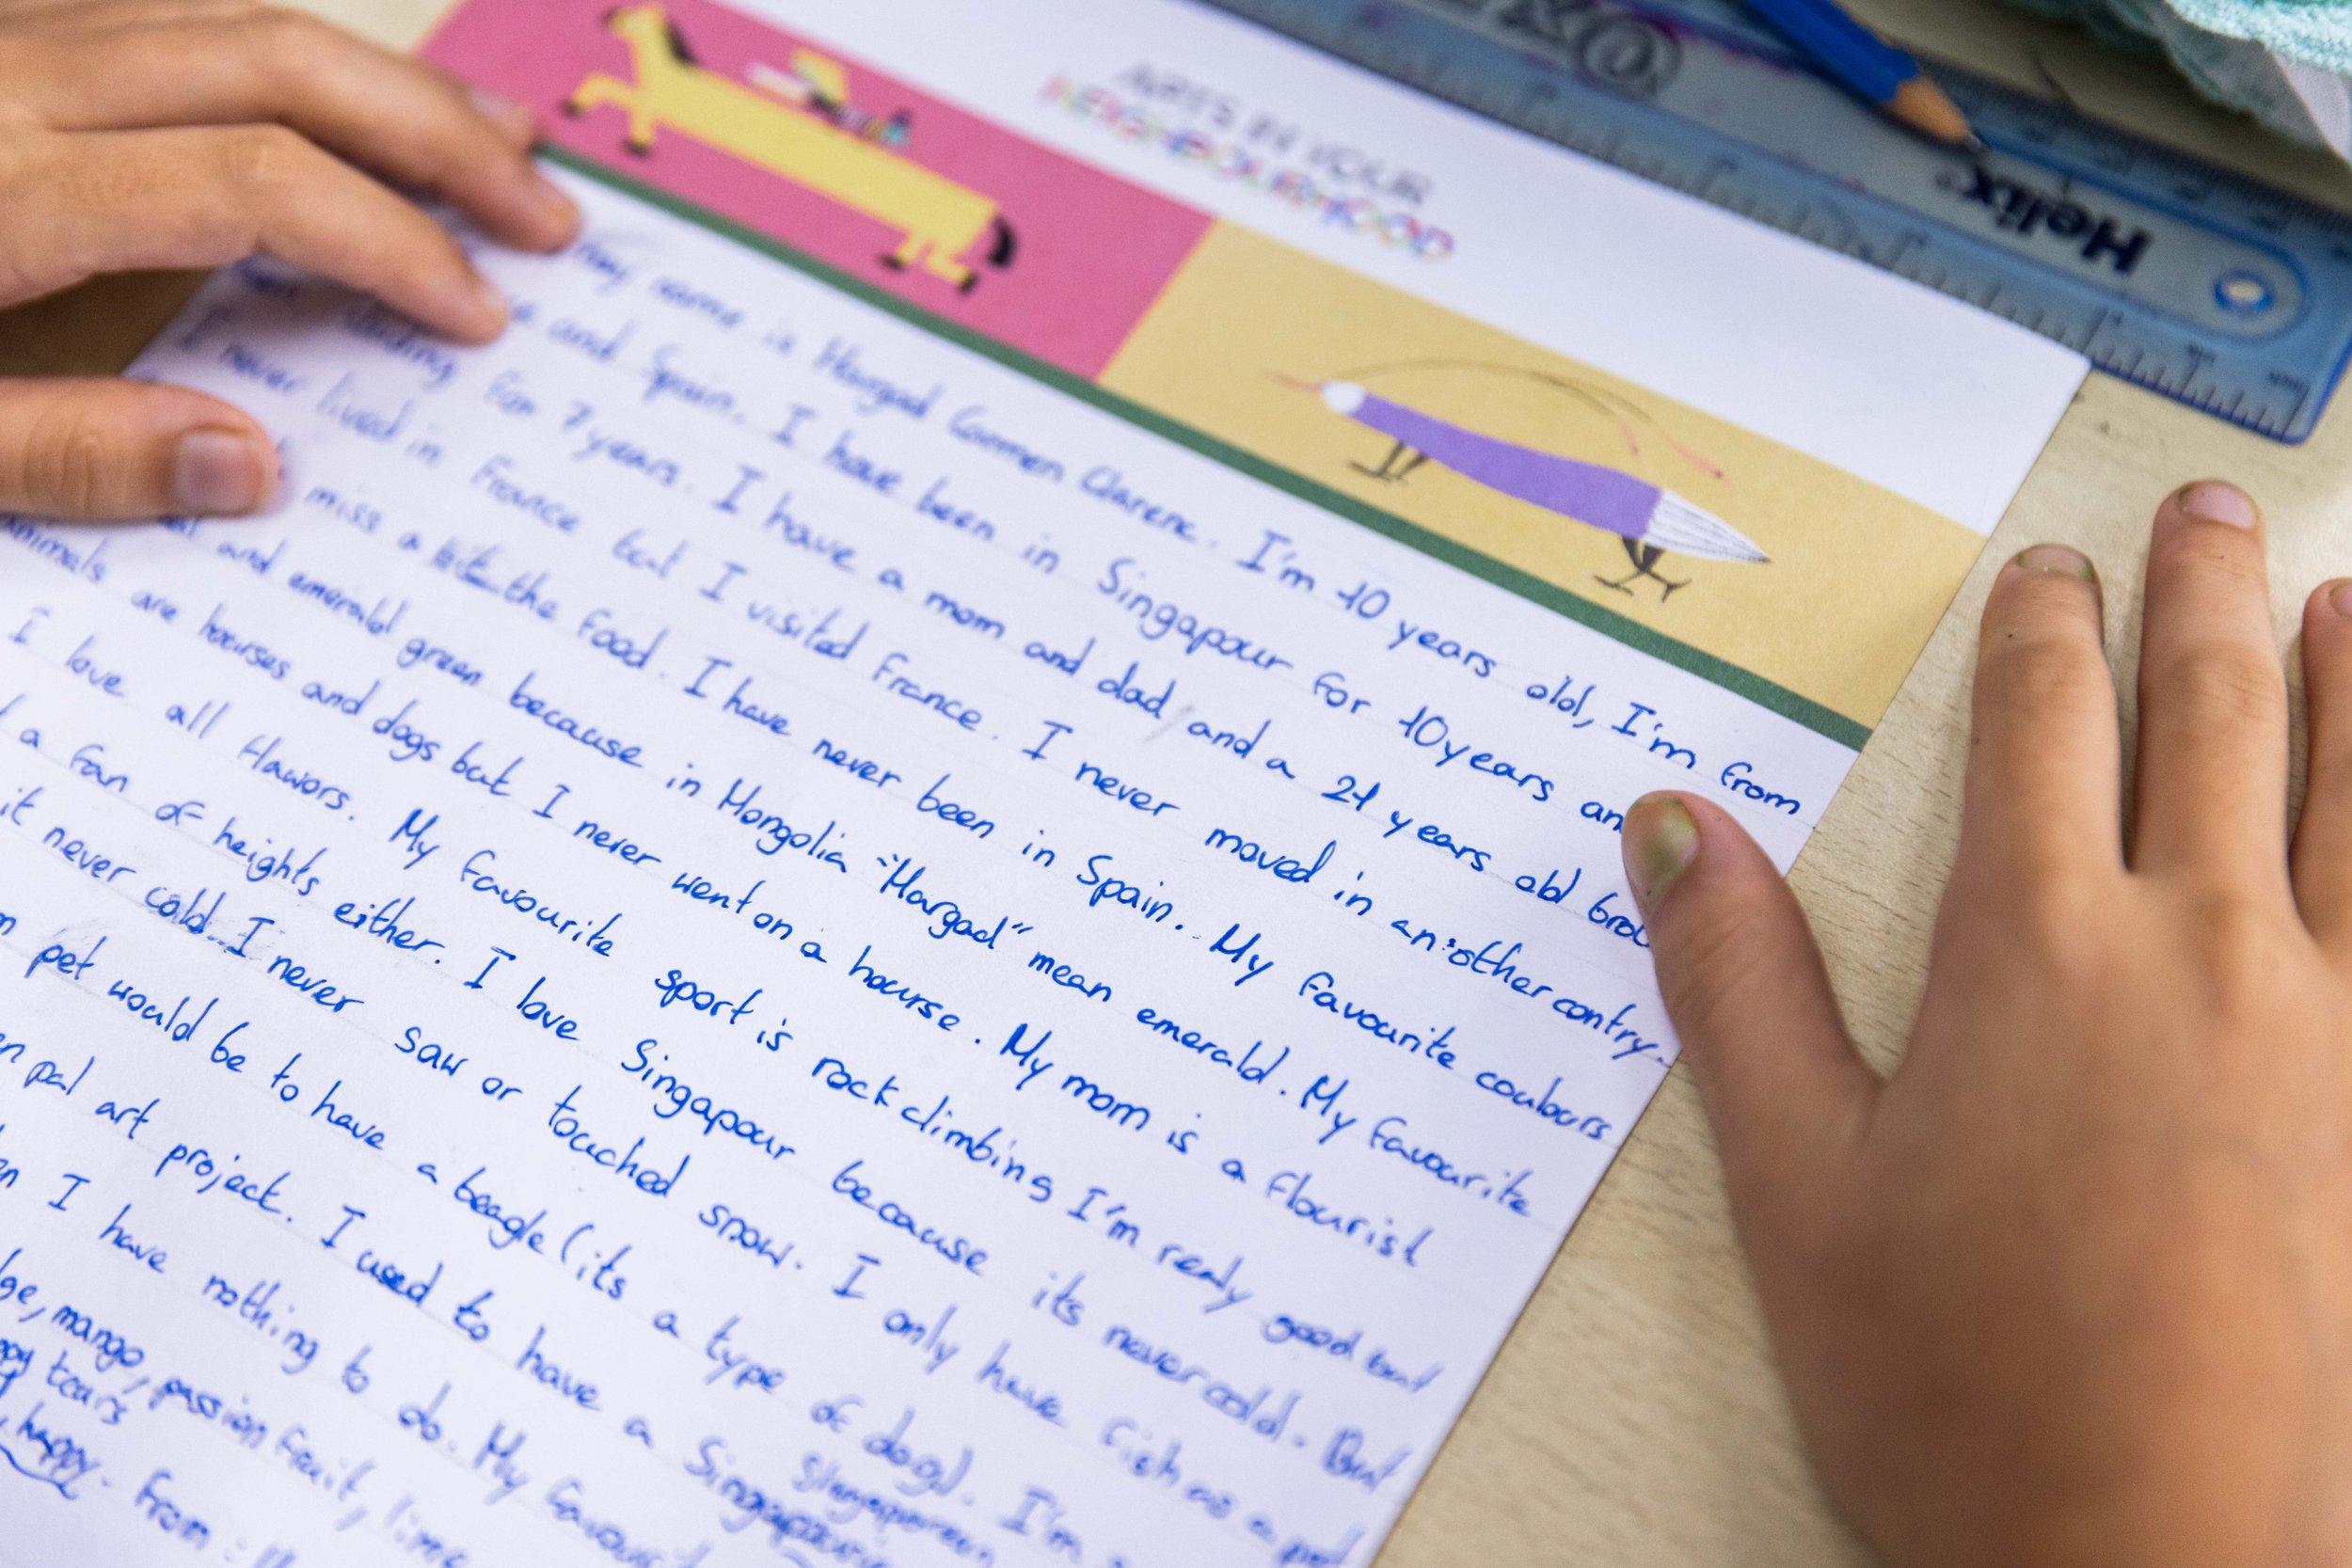 ARTS IN YOUR
NEIGHBOURHOOD
Helix
my name is Margad Carmen Clarenc. I'm 10 years old, I'm from
and Spain. I have been in Singapour for 10 years an
for 7 years. I have a mom and dad and a 21 years old bro
I never lived in France but I visited France. I never moved in an other contry.
miss a bit the food. I have never been in Spain. My favourite coulours
and emerald green because in Mongolia "Margad" mean emerald. My favourite
animals are hourses and dogs but I never went on a hourse. My mom is a flourist
I love all flawors. My favourite sport is rock climbing I'm realy good but
a fan of heights either. I love Singapour because its never cold. But
it never cold. I never saw or touched snow. I only have fish as a pet
pet would be to have a beagle (its a type of dog). I'm
pal art project. I used to have a
I have nothing to do. My favourit
mango, passion fruit, lime
tears
happy. From :